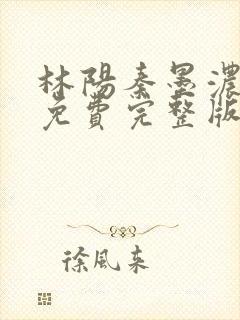 林陽秦墨濃
免費完整版
徐風來